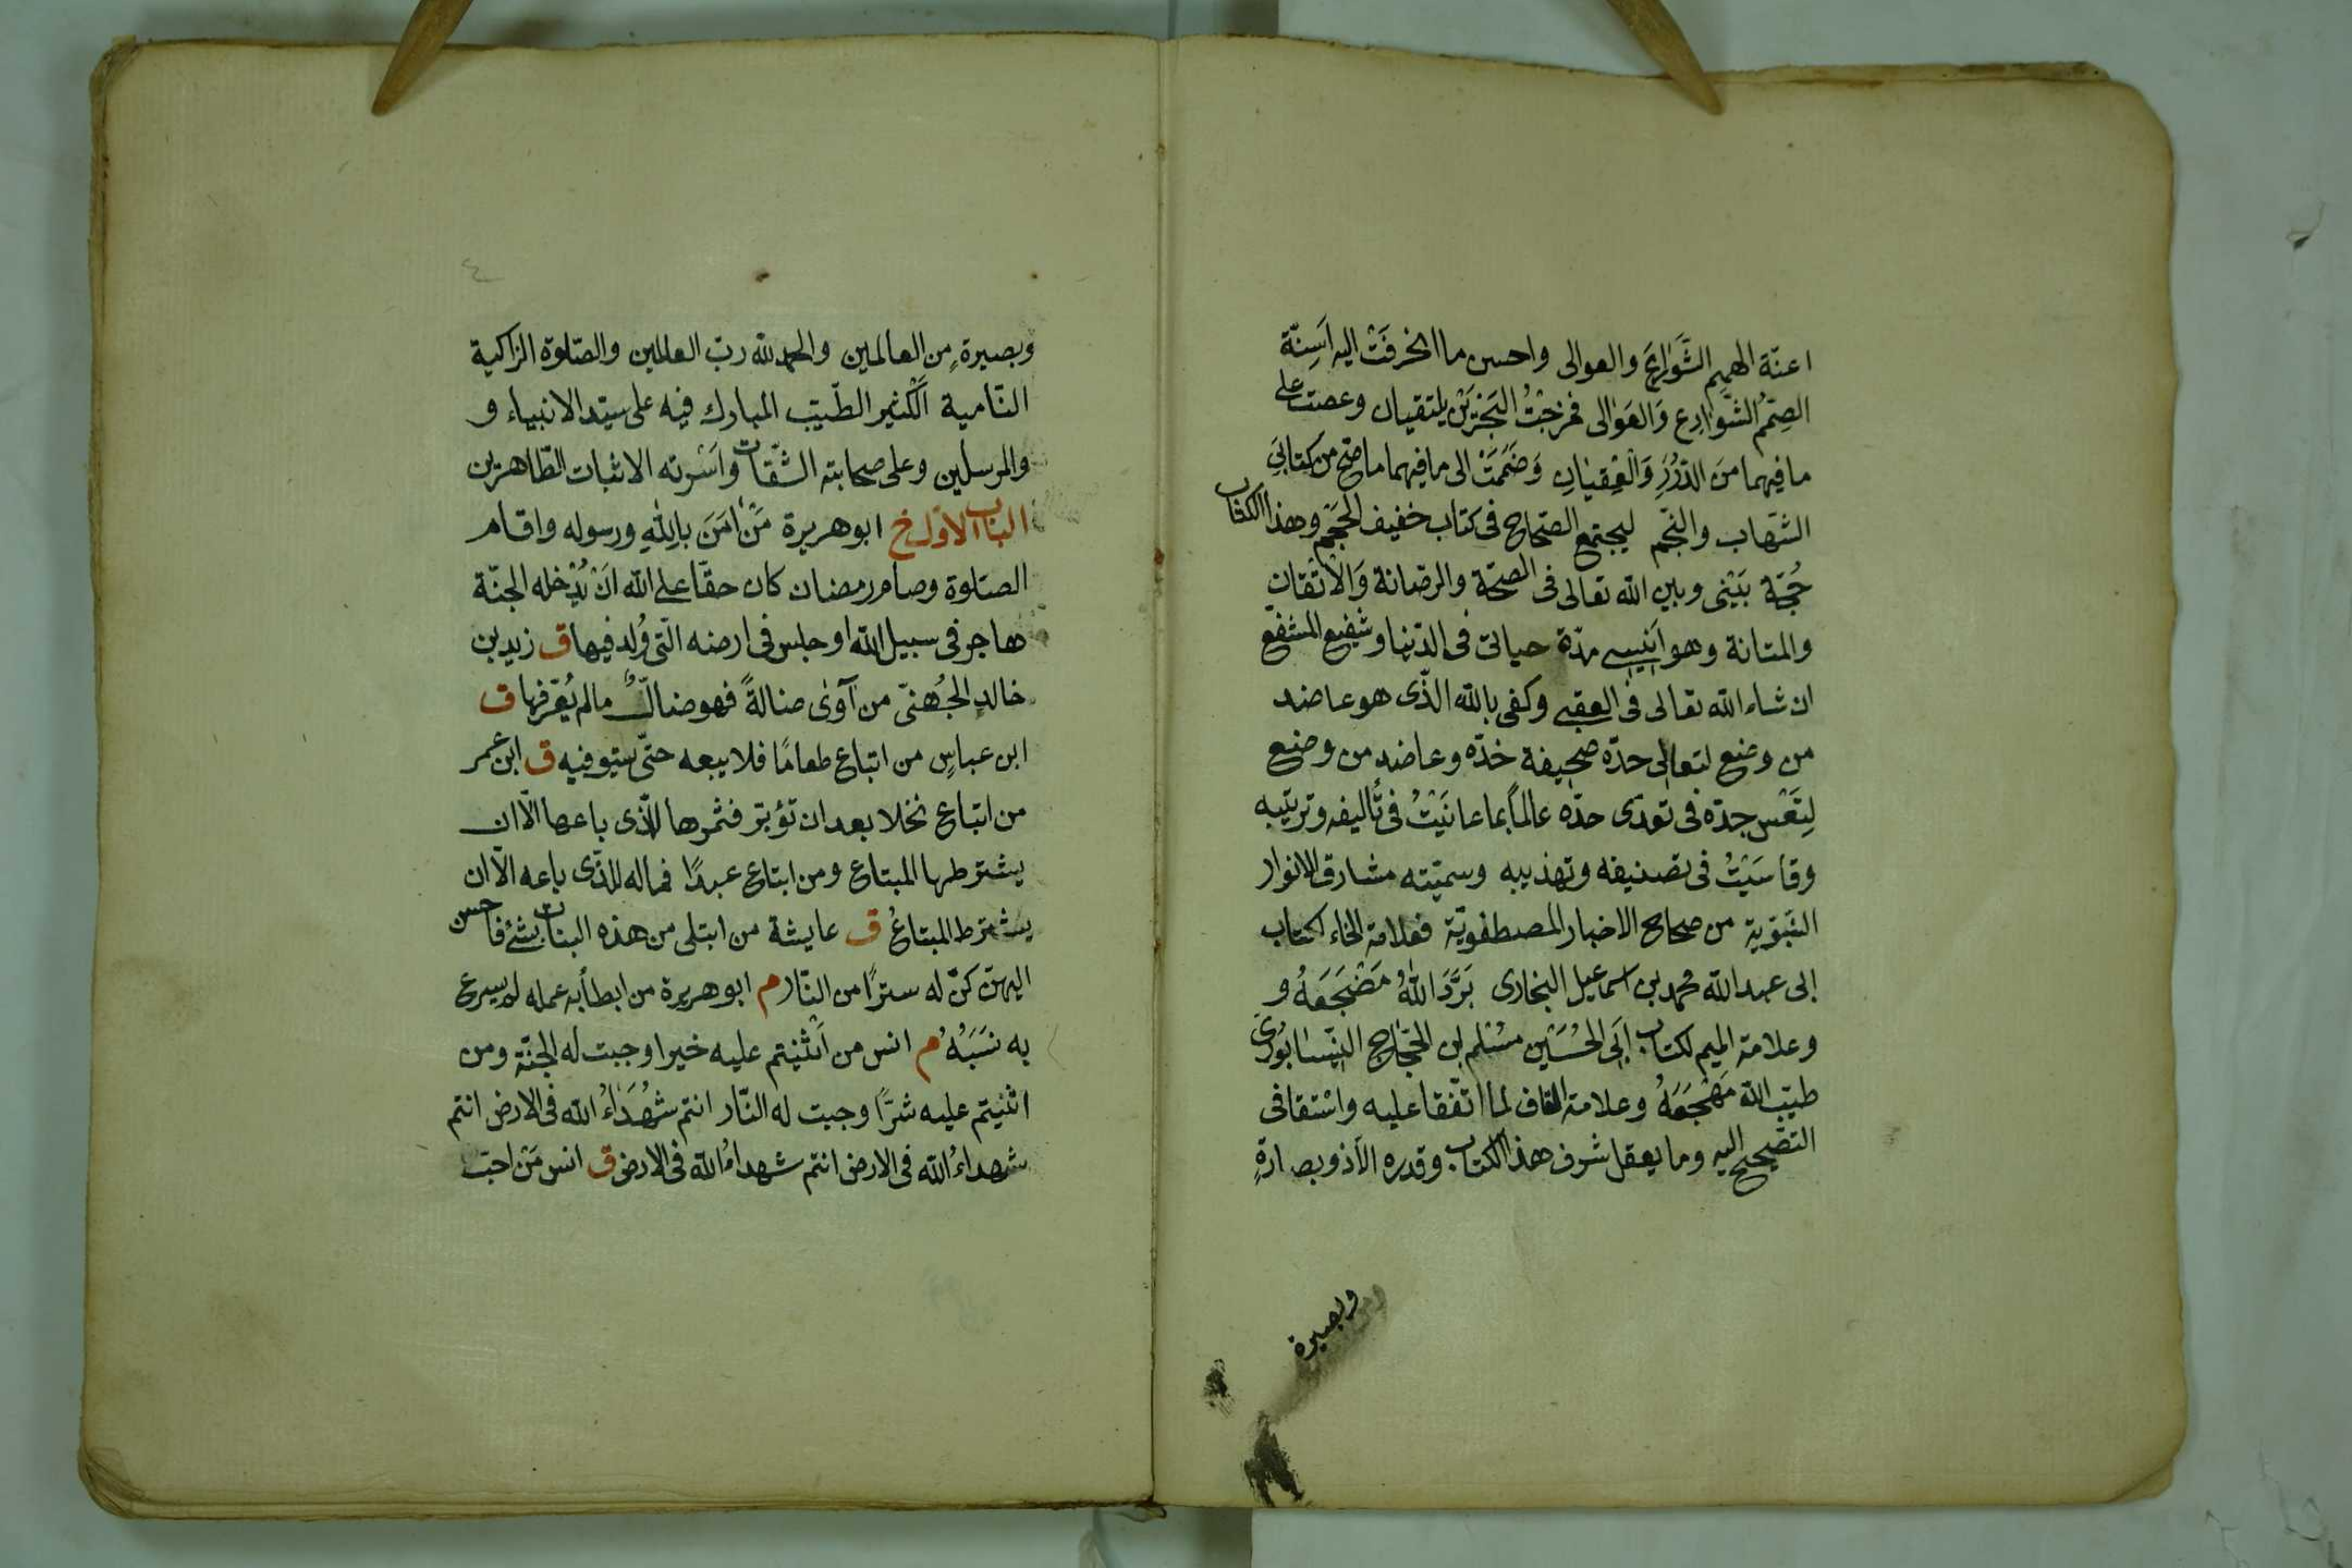 اعنّة الهمم الشَّوارع والعوالى واحسن ما انخرفَتْ اليه اَسِنّة
الصِمّم الشَّوارع وَالعَوالى فمزجْتُ البَحْرَيْن يلتقيان وعصت على
ما فيهما منَ الدُّرَرِ وَالْعِقْيانِ وَضَمَمَتْ الى ما فيهما ما صحّ من كتابَىِ
الشّهاب والنّجم ليجتمع الصّحاح فى كتاب خفيف الحجم وهذا الكتاب
حُجّة بَيْنى وبين الله تعالى فى الصحّة والرصانة وَالْاتْقان
والمتانة وهو اَنيسى مدّة حياتى فى الدّنيا وشفيع المشفّع
ان شاء الله تعالى فى العقبى وكفى بالله الذّى هو عاضد
من وضع لتعالى حدّه صحيفة خدّه وعاضد من وضع
لِتَعْس جدّه فى تعدّى حدّه عالماً بما عانَيْتُ فى تأليفه وترتيبه
وقاسَيْتُ فى تصنيفه وتهذيبه وسميّته مشارق الانوار
النّبَويّة من صحاح الاخبار المصطفويّة فعلامة الخاء لكتاب
ابى عبد الله محمد بن اسماعيل البخارى بَرَّدَ اللهُ مَضْجَعَهُ و
وعلامة الميم لكتاب ابَى الحُسَيْن مسْلم بن الحجّاج النّيسابُورىّ
طيّب الله مَهْجَعَهُ وعلامة القاف لما اتّفقا عليه واستقا فى
التصّحيح اليه وما يعقل شرف هذا الكتاب وقدره الّا ذو بصارةٍ
وبصيرة
٤
وبصيرةٍ من العالمين والحمد لله ربّ العالمين والصّلوة الزاكية
النّامية الَكْثير الطّيّب المبارك فيه على سيّد الانبياء و
والمرسلين وعلى صحابته الثّقات واَسْرته الاثبات الطّاهرين
الباب الاوّل خ ابو هريرة مَنْ اٰمَنَ بِاللهِ ورسوله واقام
الصّلوة وصام رمضان كان حقّا على الله اَنْ يُدْخله الجنّة
هاجر فى سبيل الله او جلس فى ارضه الّتى وُلد فيها ق زيد بن
خالدٍ الجُهنىّ من آوٰى ضالةً فهو ضالّ ما لم يُعّرفها ق
ابن عباسٍ من ابتاع طعامًا فلا يبعه حتّى يستوفيه ق ابن عمر
من ابتاع نخلا بعد ان تؤبّر فثمرها للّذى باعها الّا ان
يشترطها المبتاع ومن ابتاع عبدًا فماله للذّى باعه الّا ان
يشترط المبتاعُ ق عايشة من ابتلى من هذه البنات بشئ فاحسن
اليهنّ كنّ له سترًا من النّار م ابو هريرة من ابطأ به عمله لم يسرع
به نَسَبُهُ م انس من اَثْنيتم عليه خيرا وجبت له الجنّة ومن
اثنيتم عليه شرًّا وجبت له النّار انتم شُهَدَاءُ الله فى الارض انتم
شهداءُ الله فى الارض انتم شهداءُ الله فى الارض ق انس مَنْ احبّ